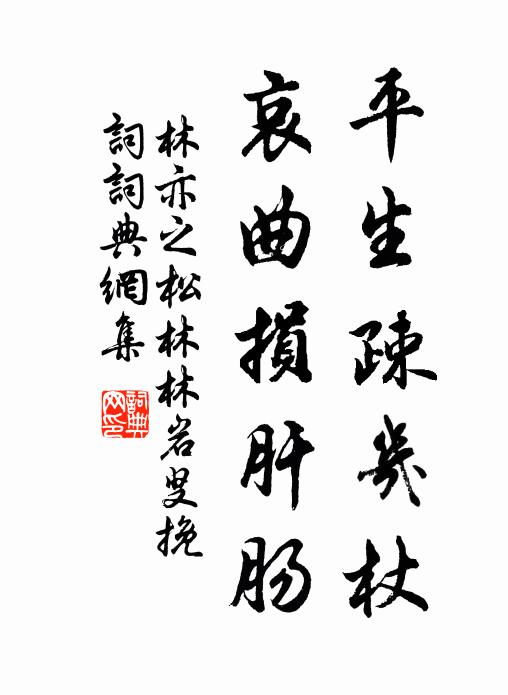 平生疎几杖
哀曲損肝肠
林亦之松林林岩叟挽
詞詞典網集
詞典网印